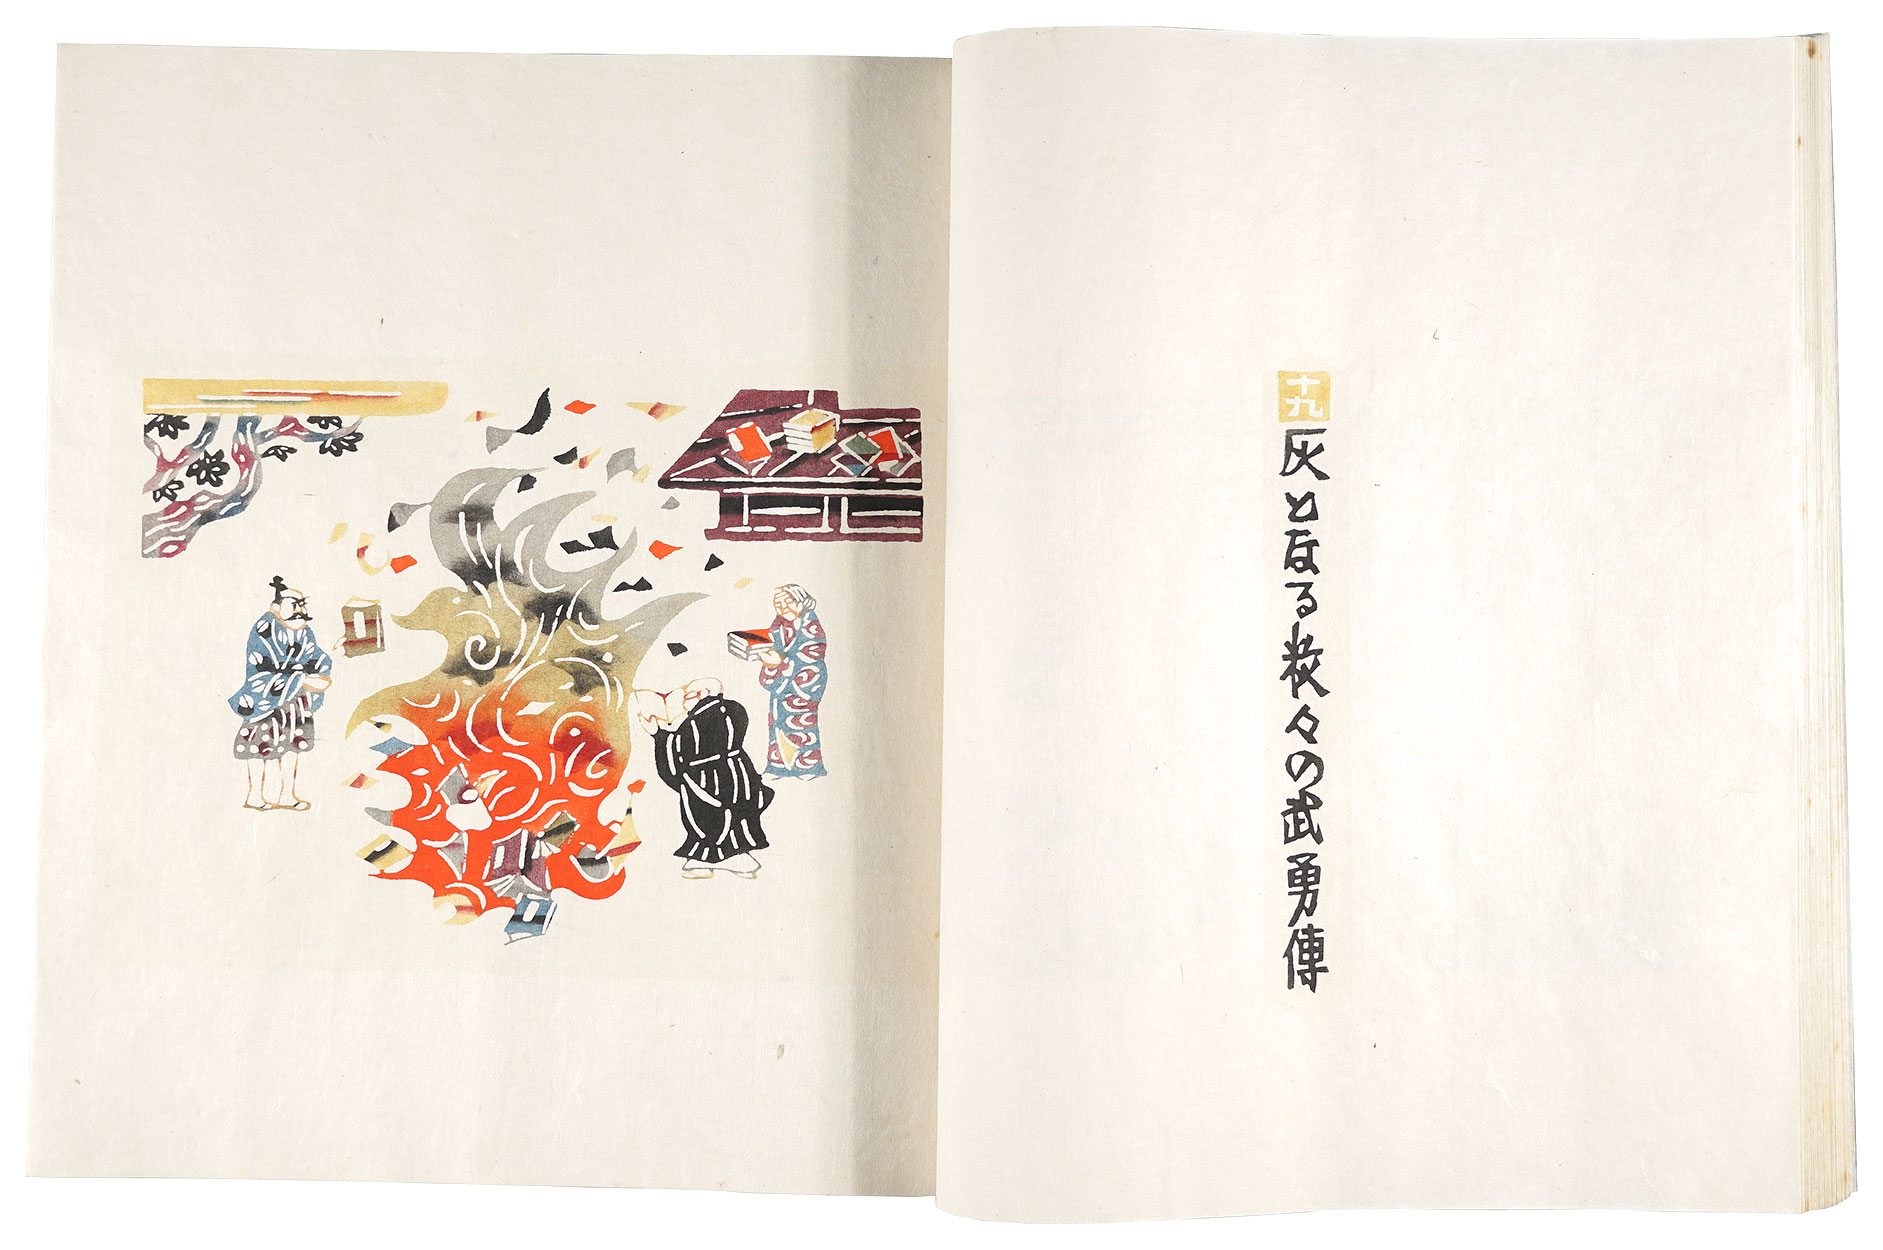 十九
灰となる数々の武勇傳